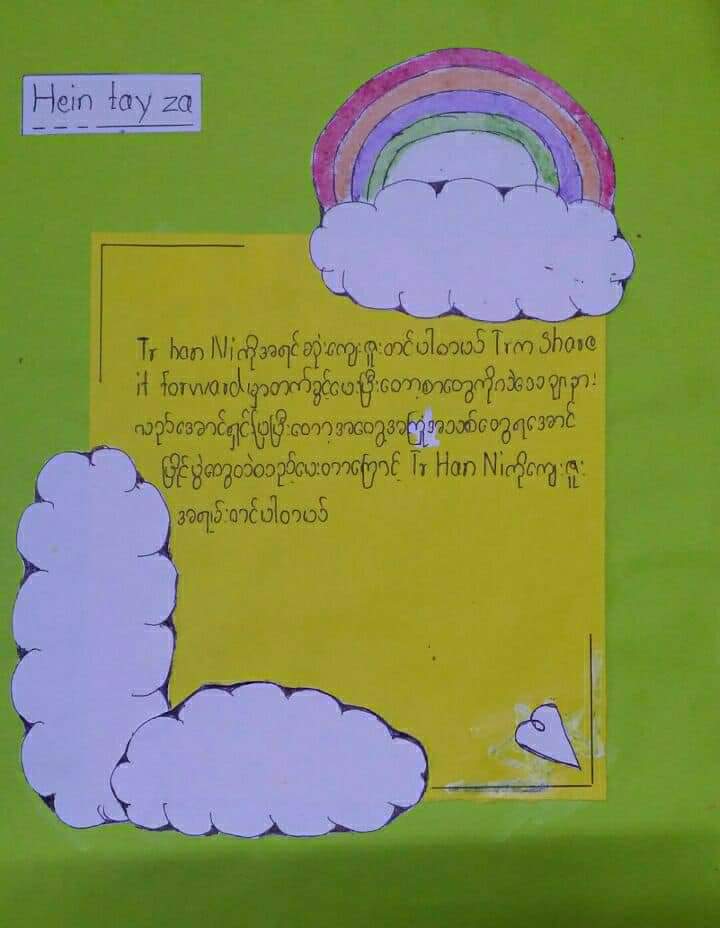 Hein tay za
Tr han Ni ကိုအရင်ဆုံးကျေးဇူးတင်ပါတယ် Trက Share
it forward မှာတက်ခွင့်ပေးပြီးတော့စာတွေကိုဂဃဏချာနား
လည်အောင်ရှင်ပြပြီးတော့အတွေ့အကြုံအသစ်တွေရအောင်
ပြိုင်ပွဲတွေထဲထည့်ပေးတာကြောင့် Tr Han Ni ကိုကျေးဇူး
အရမ်းတင်ပါတယ်